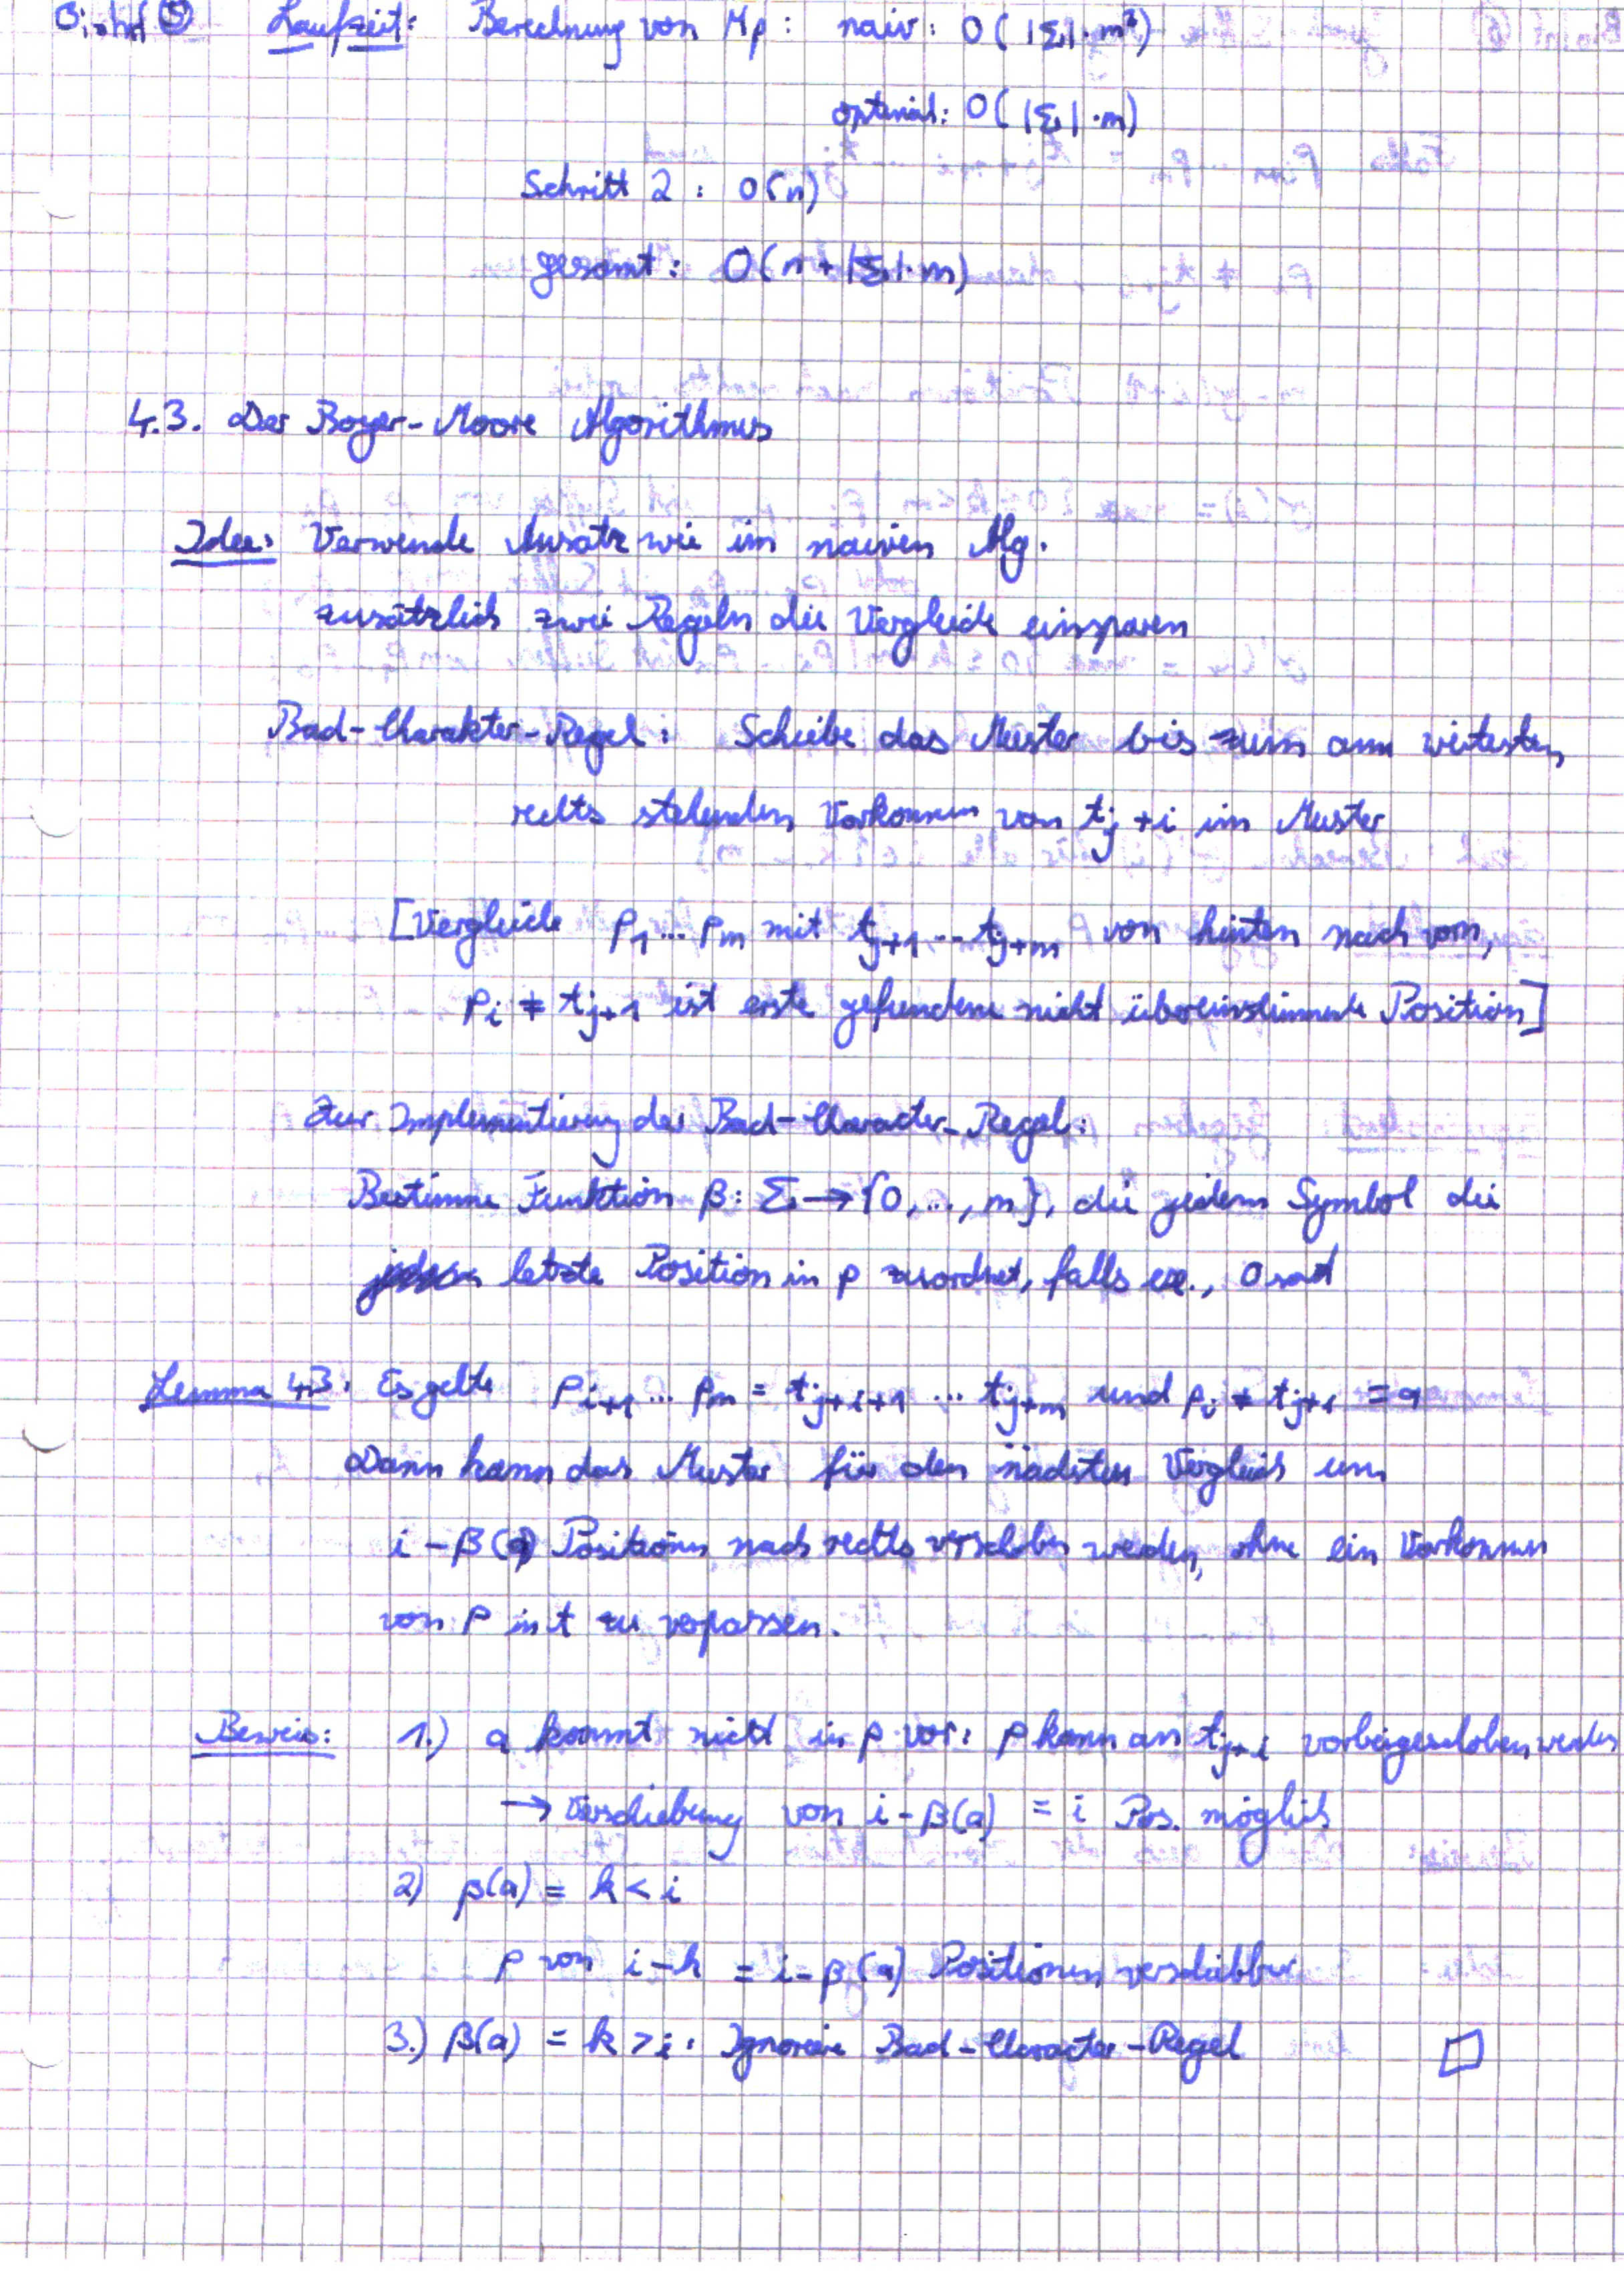 Bioinf ⑤ Laufzeit: Berechnung von Mp: naiv: O(|Σ|·m³)
optimal: O(|Σ|·m)
Schritt 2: O(n)
gesamt: O(n+|Σ|·m)
4.3. Der Boyer-Moore Algorithmus
Idee: Verwende Ansatz wie im naiven Alg.
zusätzlich zwei Regeln die Vergleiche einsparen
Bad-Charakter-Regel: Schiebe das Muster bis zum am weitesten
rechts stehenden Vorkommen von tj+i im Muster
[Vergleiche p1...pm mit tj+1...tj+m von hinten nach vorn,
pi ≠ tj+1 ist erste gefundene nicht übereinstimmende Position]
Zur Implementierung der Bad-Character-Regel:
Bestimme Funktion β: Σ → {0,...,m}, die jedem Symbol die
letzte Position in p zuordnet, falls ex., 0 sonst
Lemma 4.3: Es gelte pi+1...pm = tj+i+1...tj+m und pi ≠ tj+i = a
Dann kann das Muster für den nächsten Vergleich um
i-β(a) Positionen nach rechts verschoben werden, ohne ein Vorkommen
von p in t zu verpassen.
Beweis: 1.) a kommt nicht in p vor: p kann an tj+i vorbeigeschoben werden
→ Verschiebung von i-β(a) = i Pos. möglich
2) β(a) = k < i
p von i-k = i-β(a) Positionen verschiebbar
3.) β(a) = k > i: Ignoriere Bad-Character-Regel □